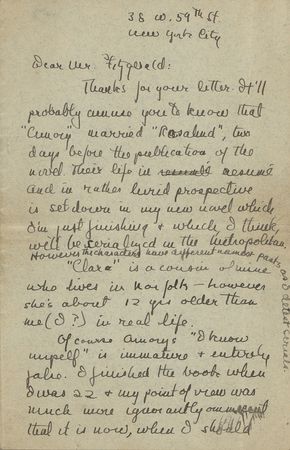 38 W. 59th St.
New York City
Dear Mr. Fitzgerald:
Thanks for your letter. It'll
probably amuse you to know that
"Amory" married "Rosalind", two
days before the publication of the
novel. Their life in resumé
and in rather lurid prospective
is set down in my new novel which
I'm just finishing & which, I think,
will be serialized in the Metropolitan.
However the characters have different names & parts as I detest serials.
"Clara" is a cousin of mine
who lives in Norfolk - however
she's about 12 yrs older than
me (I?) in real life.
Of course Amory's "I know
myself" is immature & entirely
false. I finished the book when
I was 22 & my point of view was
much more ignorantly
that it is now, when I should